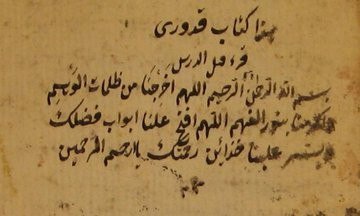 هذا كتاب قدورى
قرء قبل الدرس
بسم الله الرحمن الرحيم اللهم اخرجنا من ظلمات الوهم
واكرمنا بنور الفهم اللهم افتح علينا ابواب فضلك
علينا خزائن رحمتك يا ارحم الراحمين